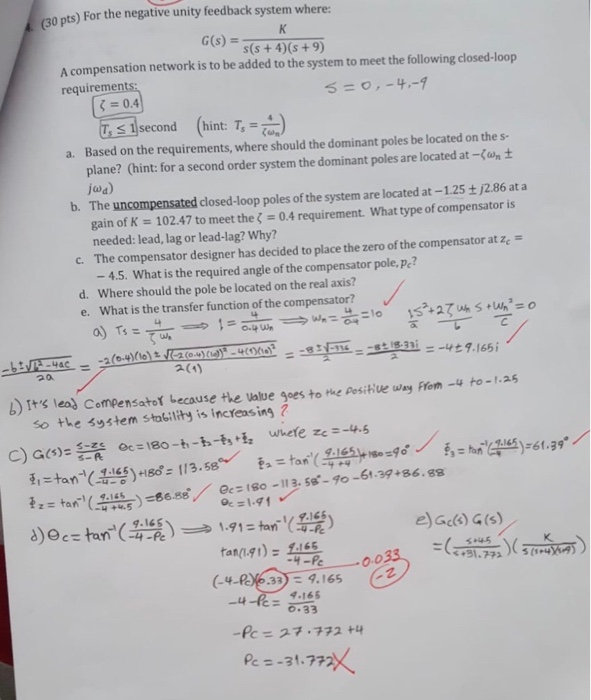 (30 pts) For the negative unity feedback system where:
G(s) = K / s(s + 4)(s + 9)
A compensation network is to be added to the system to meet the following closed-loop
requirements:
s = 0, -4, -9
ζ = 0.4
Ts ≤ 1 second (hint: Ts = 4/ζωn)
a. Based on the requirements, where should the dominant poles be located on the s-
plane? (hint: for a second order system the dominant poles are located at −ζωn ±
jωd)
b. The uncompensated closed-loop poles of the system are located at −1.25 ± j2.86 at a
gain of K = 102.47 to meet the ζ = 0.4 requirement. What type of compensator is
needed: lead, lag or lead-lag? Why?
c. The compensator designer has decided to place the zero of the compensator at zc =
− 4.5. What is the required angle of the compensator pole, pc?
d. Where should the pole be located on the real axis?
e. What is the transfer function of the compensator?
a) Ts = 4/ζωn ⟹ 1 = 4/0.4 ωn ⟹ ωn = 4/0.4 = 10 ✓ 1s²+2ζωn s+ωn² = 0
a b c
-b±√b²-4ac / 2a = -2(0.4)(10) ± √(-2(0.4)(10))² - 4(1)(10)² / 2(1) = -8±√-336 / 2 = -8±18.33i / 2 = -4±9.165i ✓
b) It's lead Compensator because the value goes to the positive way from -4 to -1.25
so the system stability is increasing ?
C) G(s) = s-zc / s-Pc θc = 180 - ∮1 - ∮2 - ∮3 + ∮z where zc = -4.5
∮1 = tan⁻¹(9.165/-4-0)+180° = 113.58° ✓ ∮2 = tan⁻¹(9.165/-4+4)+180 = 90° ✓ ∮3 = tan⁻¹(9.165/)=61.39° ✓
∮z = tan⁻¹(9.165/-4+4.5) = 86.88° ✓ θc = 180 - 113.58° - 90 - 61.39 + 86.88
θc = 1.91 ✓
d) θc = tan⁻¹(9.165/-4-Pc) ⟹ 1.91 = tan⁻¹(9.165/-4-Pc)
e) Gc(s) G(s)
tan(1.91) = 9.165/-4-Pc
= (s+4.5/s+31.772)(K/s(s+4)(s+9))
0.033
(-4-Pc)(0.33) = 9.165
-2
-4-Pc = 9.165/0.33
-Pc = 27.772 +4
Pc = -31.772 X